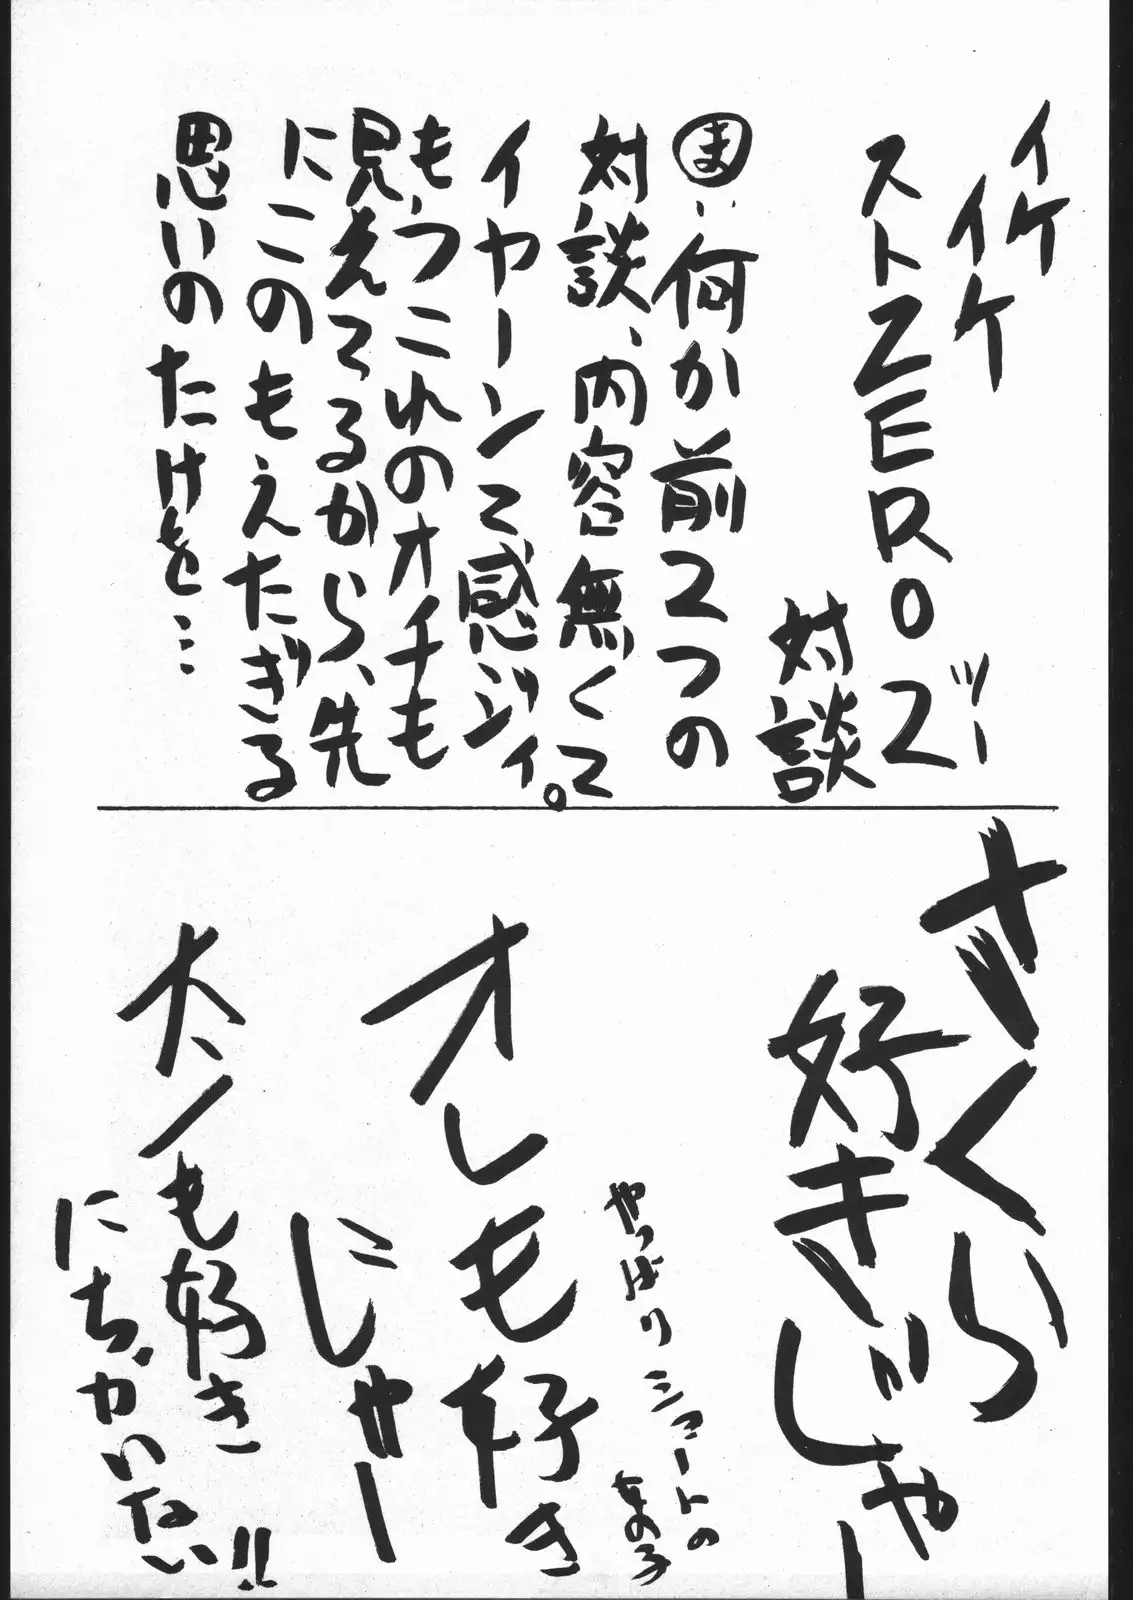 イケイケ
ストZERO2ッー
対談
ま:何か前2つの
対談、内容無くて
イヤーンて感ジィ。
もうこれのオチも
見えてるから、先
にこのもえたぎる
思いのたけを…
さくら
好きじゃー
やっぱりショートの
女の子
オレも好き
にじゃー
大ノも好き
にちがいない!!